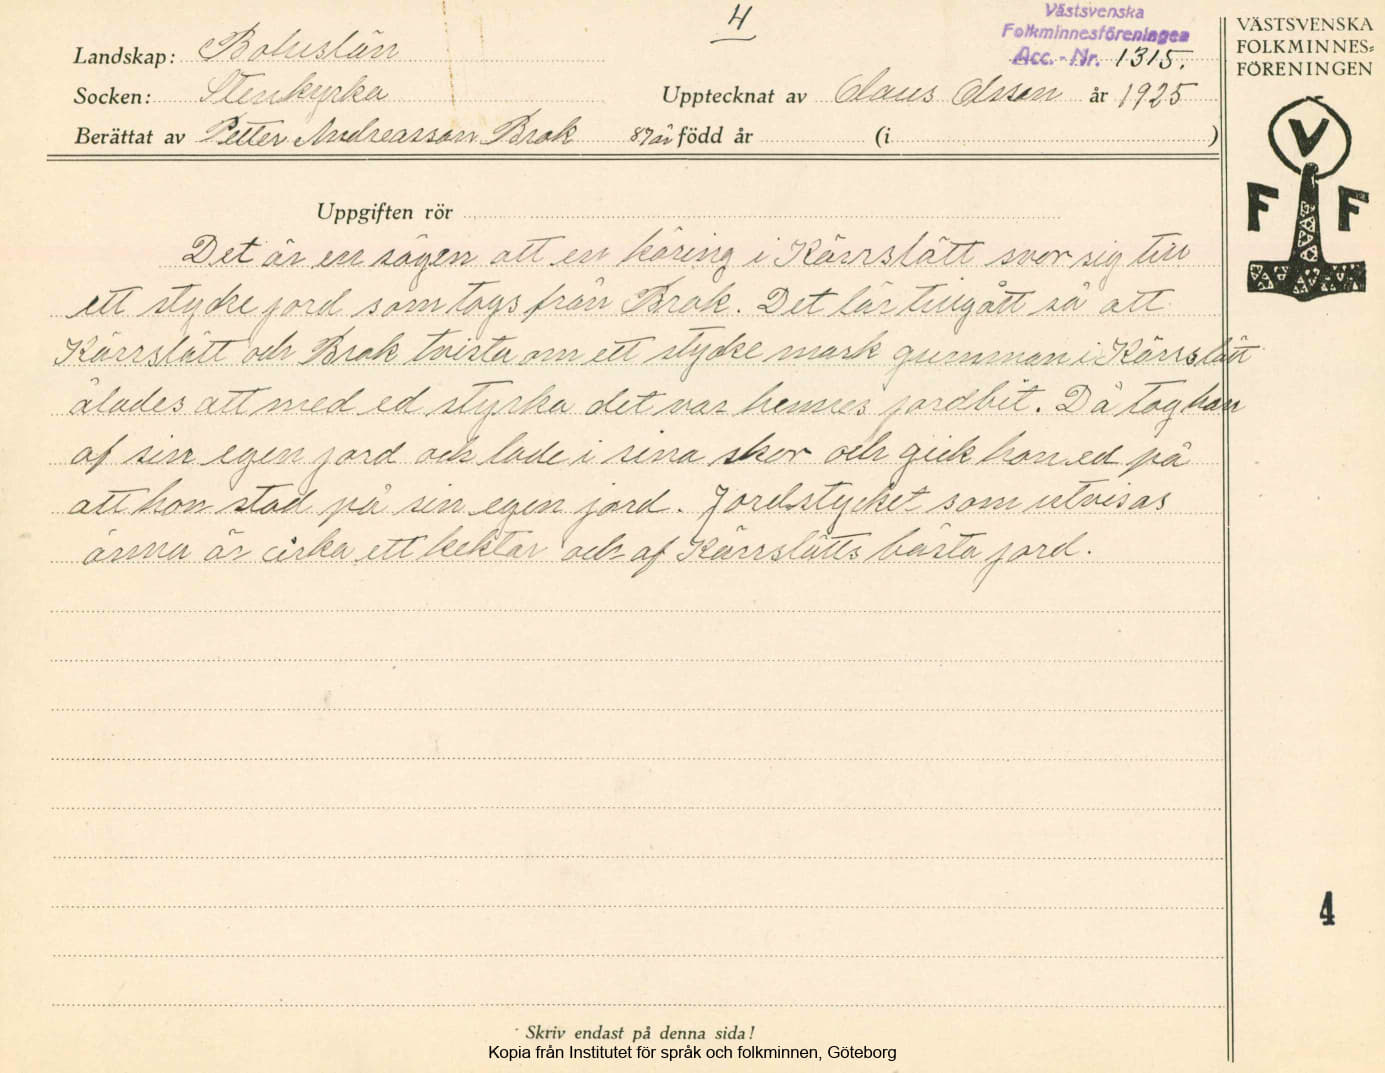 4
Västsvenska
Folkminnesföreningen
Acc.-Nr. 1315.
Landskap: Bohuslän
Socken: Stenkyrka
Upptecknat av Claus Olsson år 1925
Berättat av Petter Andreasson Brok 87 år född år (i )
VÄSTSVENSKA
FOLKMINNES-
FÖRENINGEN
V
F F
Uppgiften rör
Det är en sägen att en käring i Kärrslätt svor sig till
ett stycke jord som togs från Brok. Det lär tillgått så att
Kärrslätt och Brok tvista om ett stycke mark gumman i Kärrslätt
ålades att med ed styrka det var hennes jordbit. Då tog hon
af sin egen jord och lade i sina skor och gick hon ed på
att hon stod på sin egen jord. Jordstycket som utvisas
änna är cirka ett hektar och af Kärrslätts bästa jord.
4
Skriv endast på denna sida!
Kopia från Institutet för språk och folkminnen, Göteborg